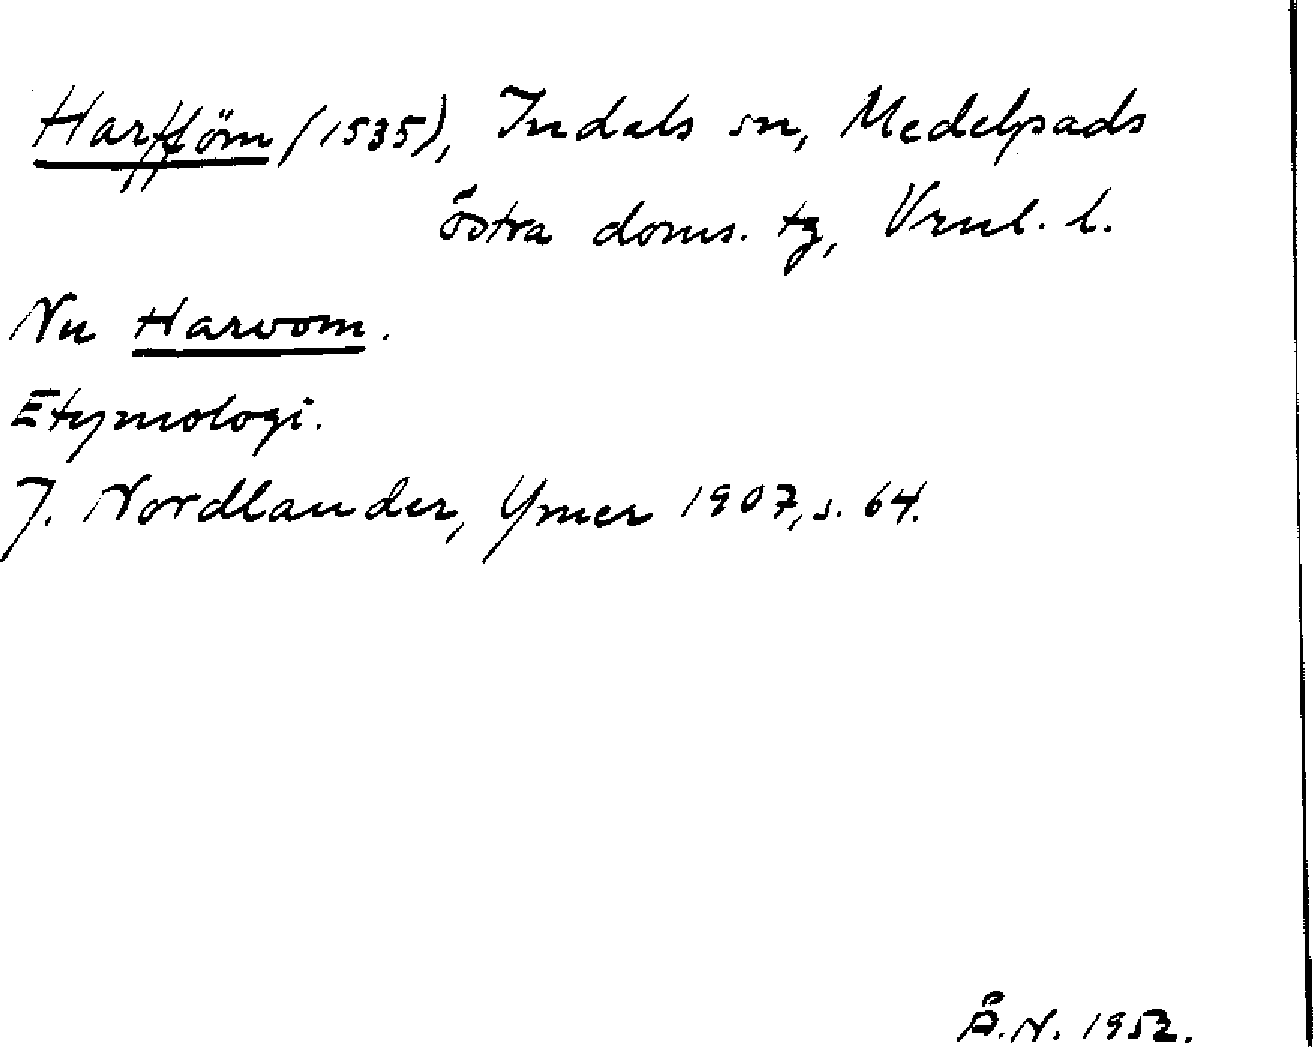 Harfföm (1535), Indals sn, Medelpads
östra doms. tg, Vrnl. l.
Nu Harvom.
Etymologi.
J. Nordlander, Ymer 1907, s. 64.
Å.N. 1952.